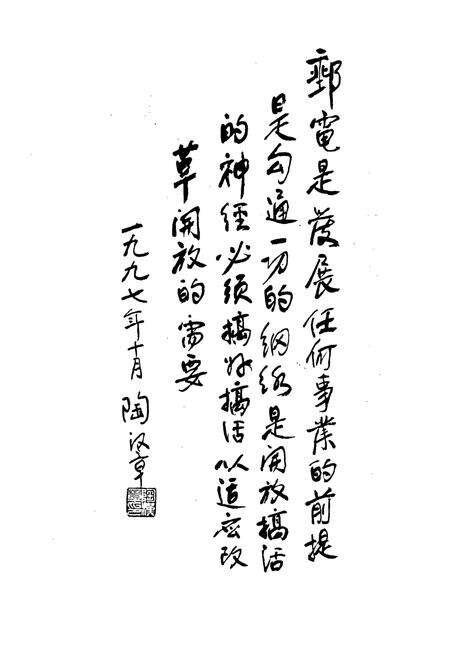 郵電是发展任何事業的前提
是勾通一切的網絡是開放搞活
的神經必须搞好搞活以适应改
革開放的需要
一九九七年十月 陶汉章